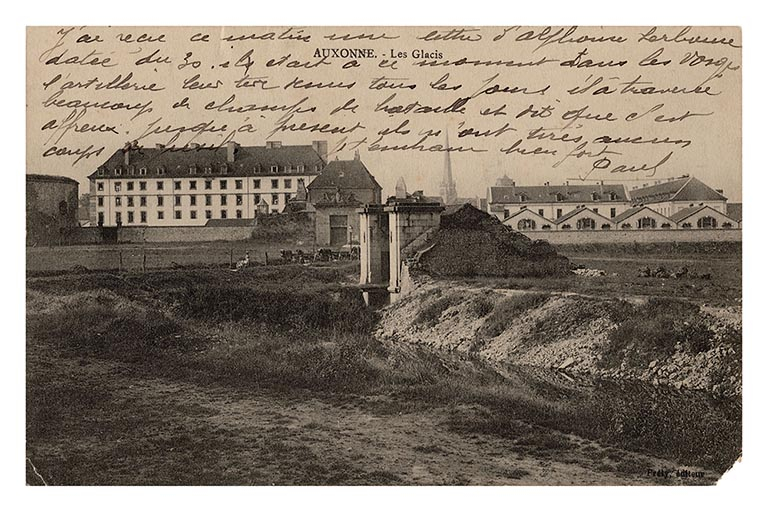 J'ai reçu ce matin une lettre d'Alphonse
AUXONNE. - Les Glacis
datée du 30. ils était à ce moment dans les Vosges
l'artillerie leur tire dessus tous les jours il a traversé
beaucoup de champs de bataille et dit que c'est
affreux jusqu'à présent ils n'ont tirés aucun
coups de fusil, j'entend bien fort
Paul
Prély, éditeur